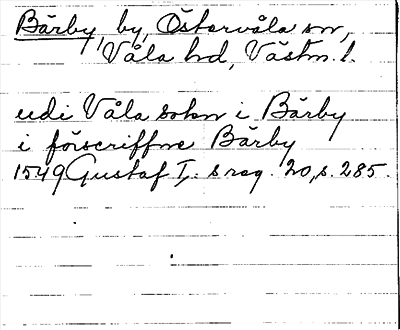 Bärby by, Östervåla sn,
Våla hd, Västm. l.
udi Våla sokn i Bärby
i förscriffne Bärby
1549 Gustaf I,. s reg. 20, s. 285.